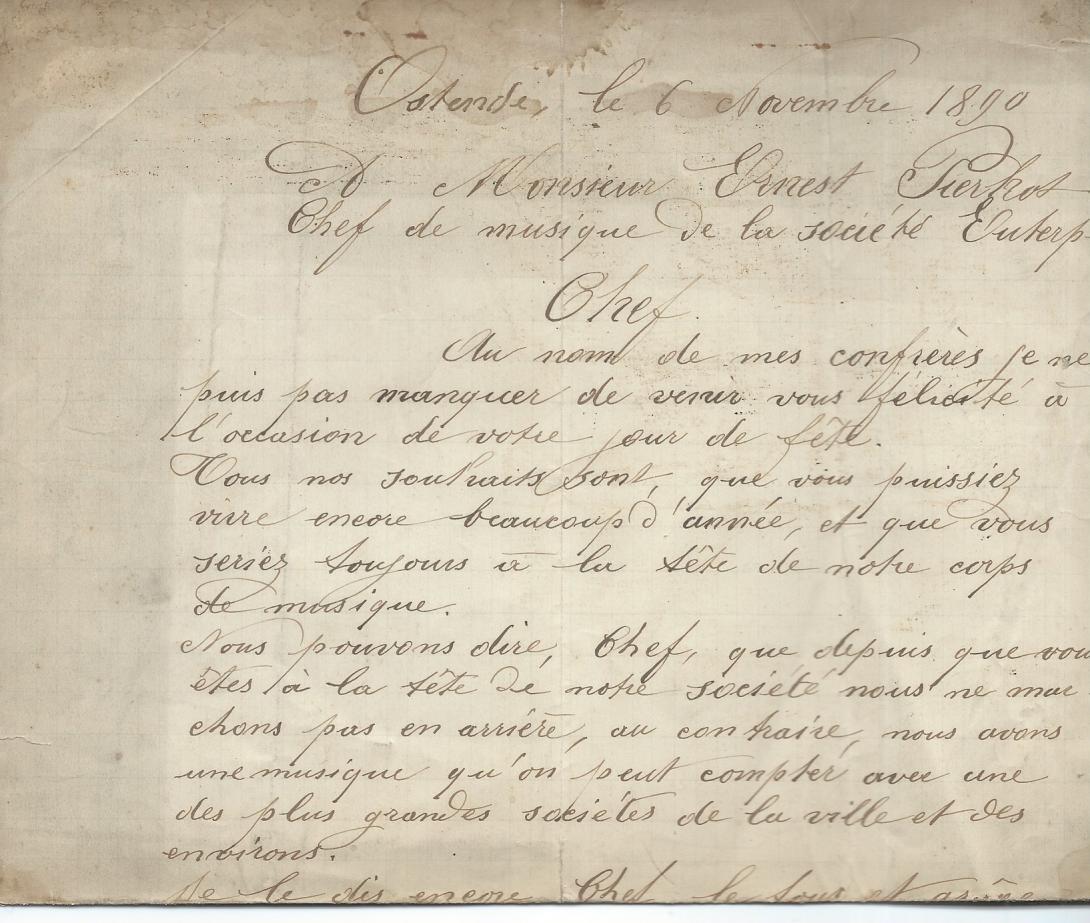 Ostende, le 6 Novembre 1890
A Monsieur Ernest Pierkot
Chef de musique de la société Euterp
Chef.
Au nom de mes confrères je ne
puis pas manquer de venir vous félicité à
l'occasion de votre jour de fête.
Tous nos souhaits sont, que vous puissiez
vivre encore beaucoup d'année, et que vous
seriez toujours à la tête de notre corps
de musique.
Nous pouvons dire, Chef, que depuis que vou
êtes à la tête de notre société nous ne mar
chons pas en arrière, au contraire, nous avons
une musique qu'on peut compter avec une
des plus grandes sociétés de la ville et des
environs.
Je le dis encore Chef le tout et